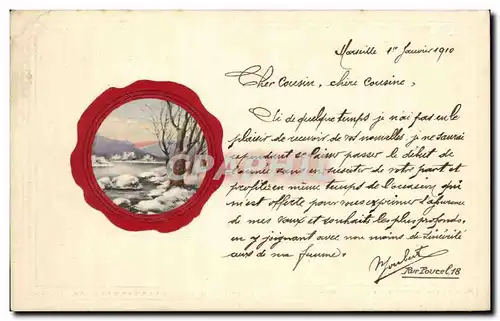 Marseille 1er Janvier 1910
Cher Cousin, chère Cousine,
Si de quelque temps je n'ai pas eu le
plaisir de recevoir de vos nouvelles je ne saurai
cependant laisser passer le début de
l'année sans en de votre part et
profiter en même temps de l'occasion qui
m'est offerte pour vous exprimer l'assurance
de mes vœux et souhaits les plus profonds,
en y joignant avec non moins de sincérité
ceux de ma femme.
Rue Poucel, 18